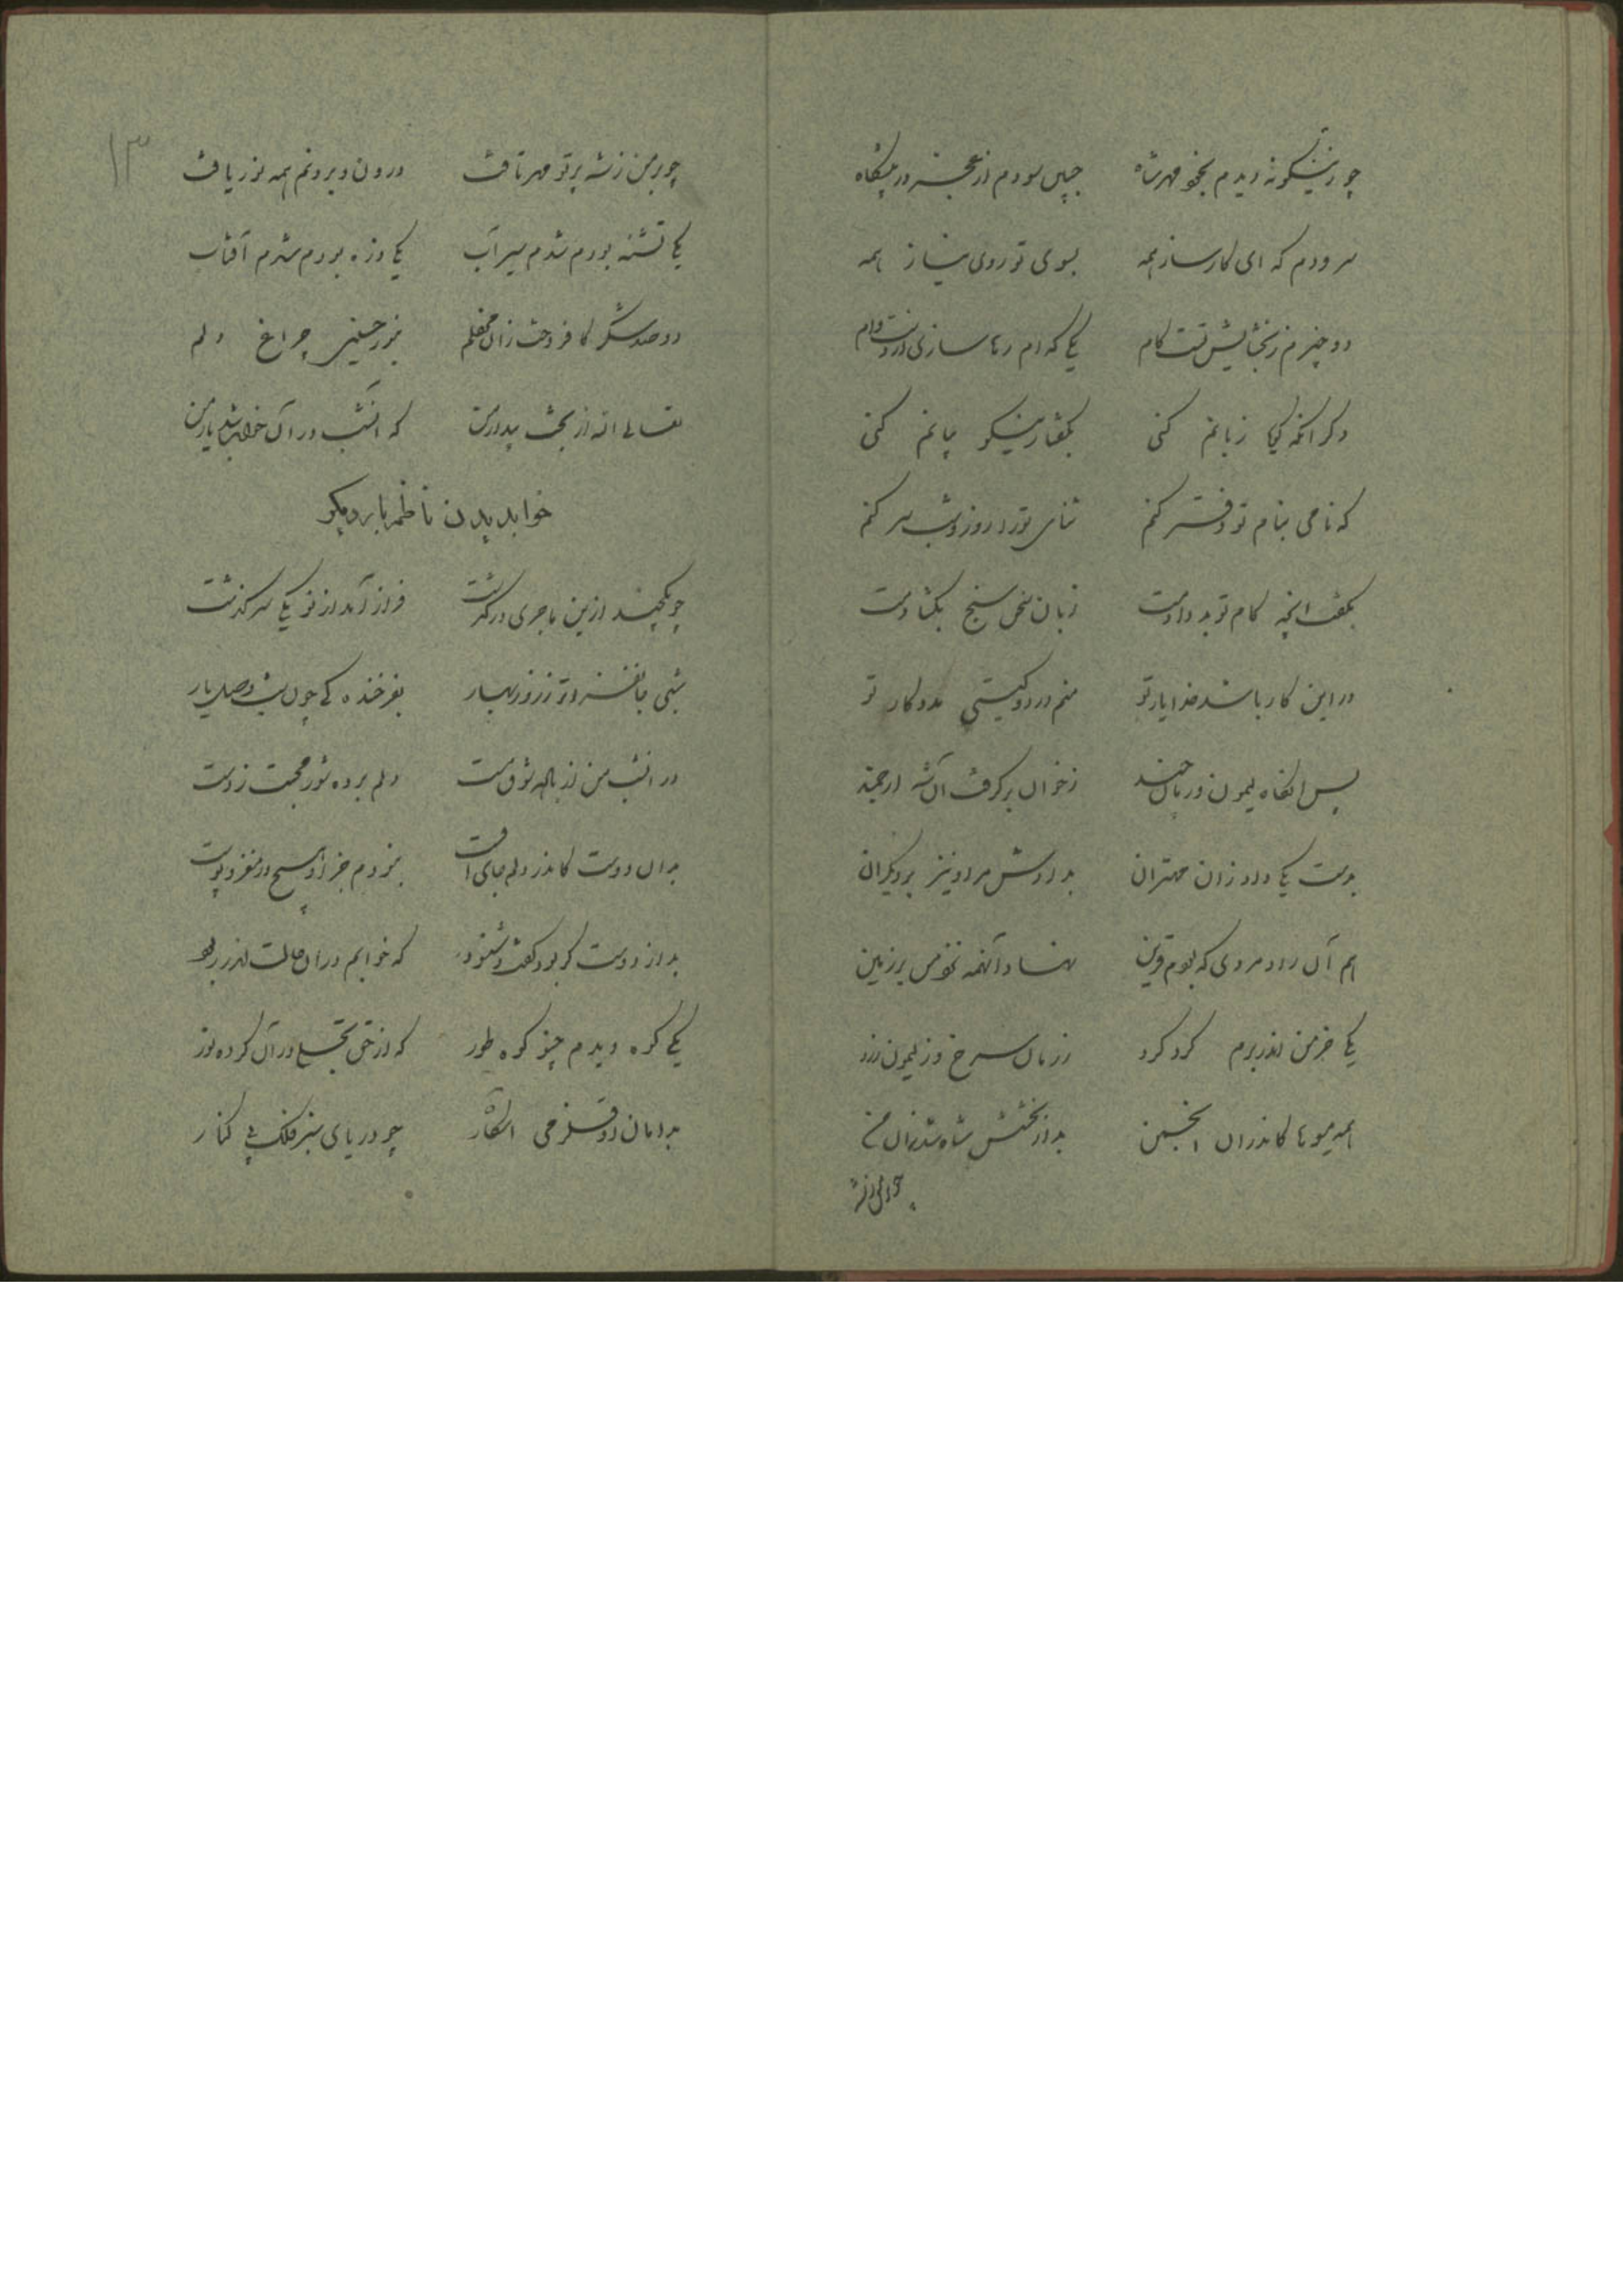 چو زینگونه دیدم بخود مهر شاه جبین سودم از عجز در پیشگاه
سرودم که ای کارساز همه بسوی تو روی نیاز همه
دو چیزم ز بخشایش تست کام یکی که ام رها سازی از دست وام
دگر آنکه گویا زبانم کنی بگفتار نیکو بیانم کنی
که نامی بنام تو دفتر کنم ثنای تو را روز و شب سر کنم
بگفت آنچه کام تو بد دادمت زبان سخن سنج بگشادمت
در این کار باشد خدا یار تو منم در دو گیتی مددکار تو
پس آنگاه لیمون و رمان چند ز خوان برگرفت آن شه ارجمند
بدست یکی داد زان مهتران بدادش مر او نیز بر دیگران
هم آن رادمردی که بودم قرین نهاد آنهمه نزد من بر زمین
یکی خرمن اندر برم گرد کرد ز رمان سرخ و ز لیمون زرد
همه میوها کاندران انجمن بد از بخشش شاه شد زان من
چو بر من ز شه پرتو مهر تافت درون و برونم همه نور یافت
یکی تشنه بودم شدم سیر آب یکی ذره بودم شدم آفتاب
دو صد شکر کافروخت زان محفلم بنور حسینی چراغ دلم
تعالی الله از بخت بیدار من که امشب در آن خواب شد یار من
خواب دیدن ناظم بار دیگر
چو یکچند ازین ماجری درگذشت فراز آمد از نو یکی سرگذشت
شبی جانفزاتر ز روز بهار بفرخندگی چون شب وصل یار
در آنشب من از باده شوق مست دلم برده شور محبت ز دست
بدان دوست کاندر دلم جای اوست نبودم جز او هیچ در مغز و پوست
بد از دوست گر بود گفت و شنود که خوابم در آن حالت اندر ربود
یکی کوه دیدم چو کوه طور که از حق تجلی در آن کرده نور
بدامان او قلزمی آشکار چو دریای سبز فلک بی کنار
۱۳